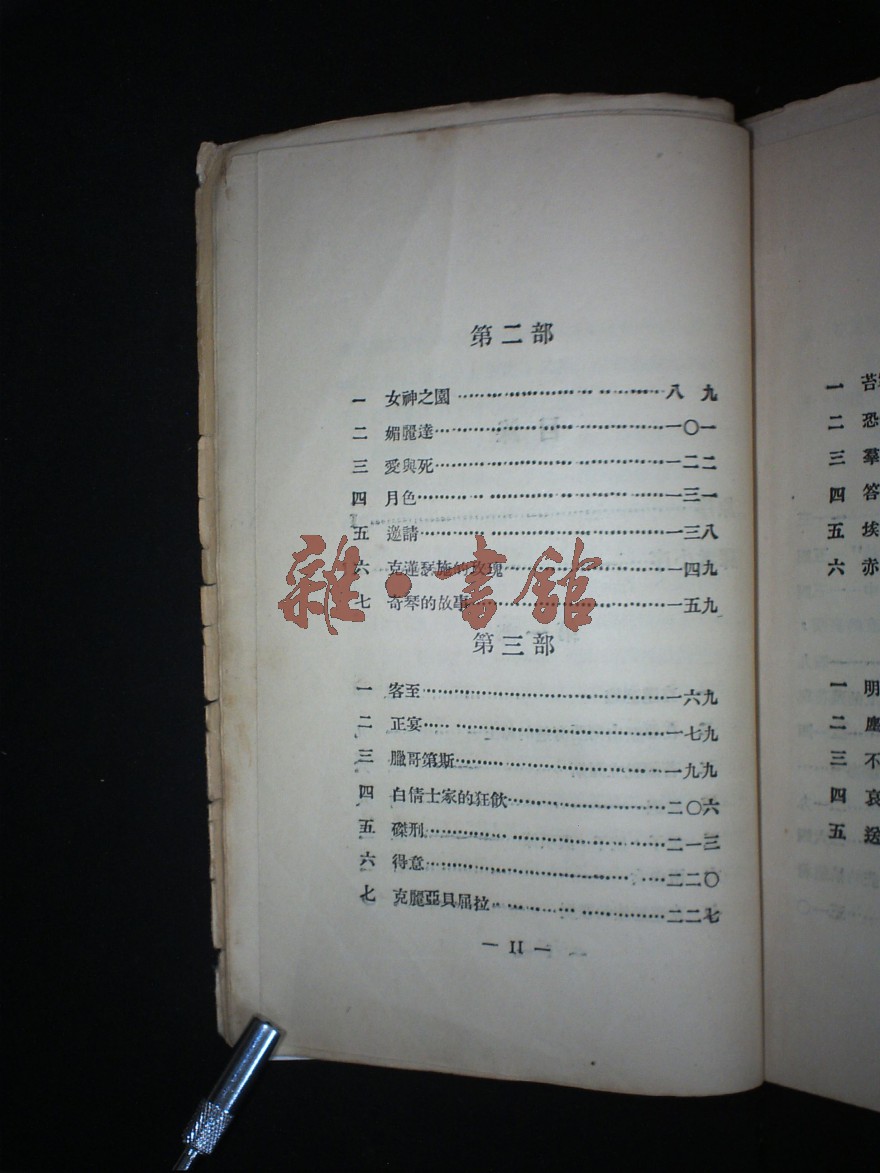 第二部
一 女神之園 八九
二 媚麗達 一〇一
三 愛與死 一二二
四 月色 一三一
五 邀請 一三八
六 克蓮瑟施的玫瑰 一四九
七 奇琴的故事 一五九
雜·書館
第三部
一 客至 一六九
二 正宴 一七九
三 臘哥第斯 一九九
四 白倩士家的狂飲 二〇六
五 磔刑 二一三
六 得意 二二〇
七 克麗亞貝屈拉 二二七
— II —
一 苔
二 恐
三 羣
四 答
五 埃
六 赤
一 明
二 塵
三 不
四 哀
五 送